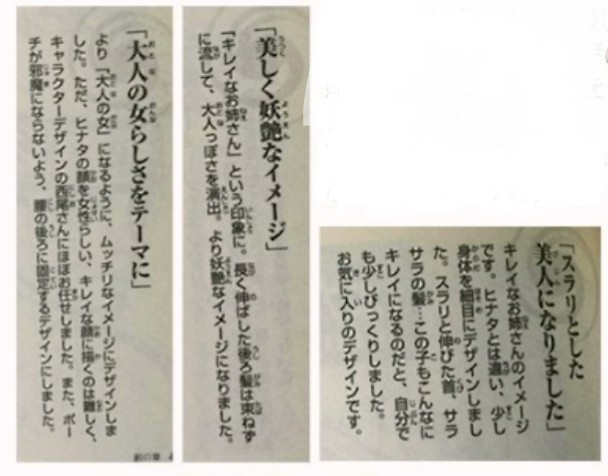 「大人の女らしさをテーマに」
より「大人の女」になるように、ムッチリなイメージにデザインしま
した。ただ、ヒナタの顔を女性らしい、キレイな顔に描くのは難しく、
キャラクターデザインの西尾さんにほぼお任せしました。また、ポー
チが邪魔にならないよう、腰の後ろに固定するデザインにしました。
「美しく妖艶なイメージ」
「キレイなお姉さん」という印象に。長く伸ばした後ろ髪は束ねず
に流して、大人っぽさを演出。より妖艶なイメージになりました。
「スラリとした
美人になりました」
キレイなお姉さんのイメージ
です。ヒナタとは違い、少し
身体を細目にデザインしまし
た。スラリと伸びた首、サラ
サラの髪…この子もこんなに
キレイになるのだと、自分で
も少しびっくりしました。
お気に入りのデザインです。